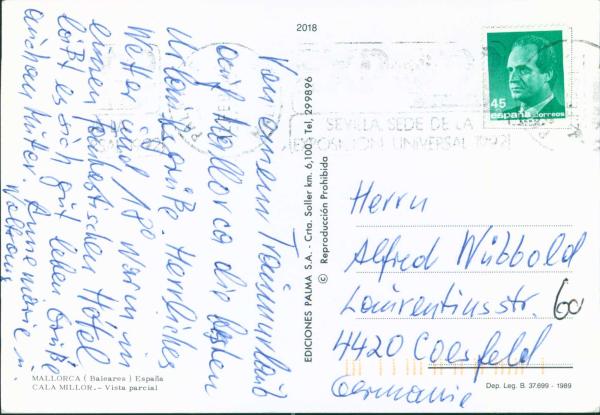 2018
Von einem Traumurlaub
auf Mallorca die besten
Urlaubsgrüße. Herrliches
Wetter und 18° warm in
einem fantastischen Hotel
läßt es sich gut leben. Grüße
auch an Mutter. Annemarie u.
Waltraud
MALLORCA (Baleares) España
CALA MILLOR.- Vista parcial
EDICIONES PALMA S.A. - Crta. Soller km. 6,100 - Tel, 299896
© Reproducción Prohibida
SEVILLA, SEDE DE LA
EXPOSICION UNIVERSAL 1992
45
españa correos
Herrn
Alfred Wübbold
Laurentiusstr. 60
4420 Coesfeld
Germanie
Dep. Leg. B. 37.699 - 1989